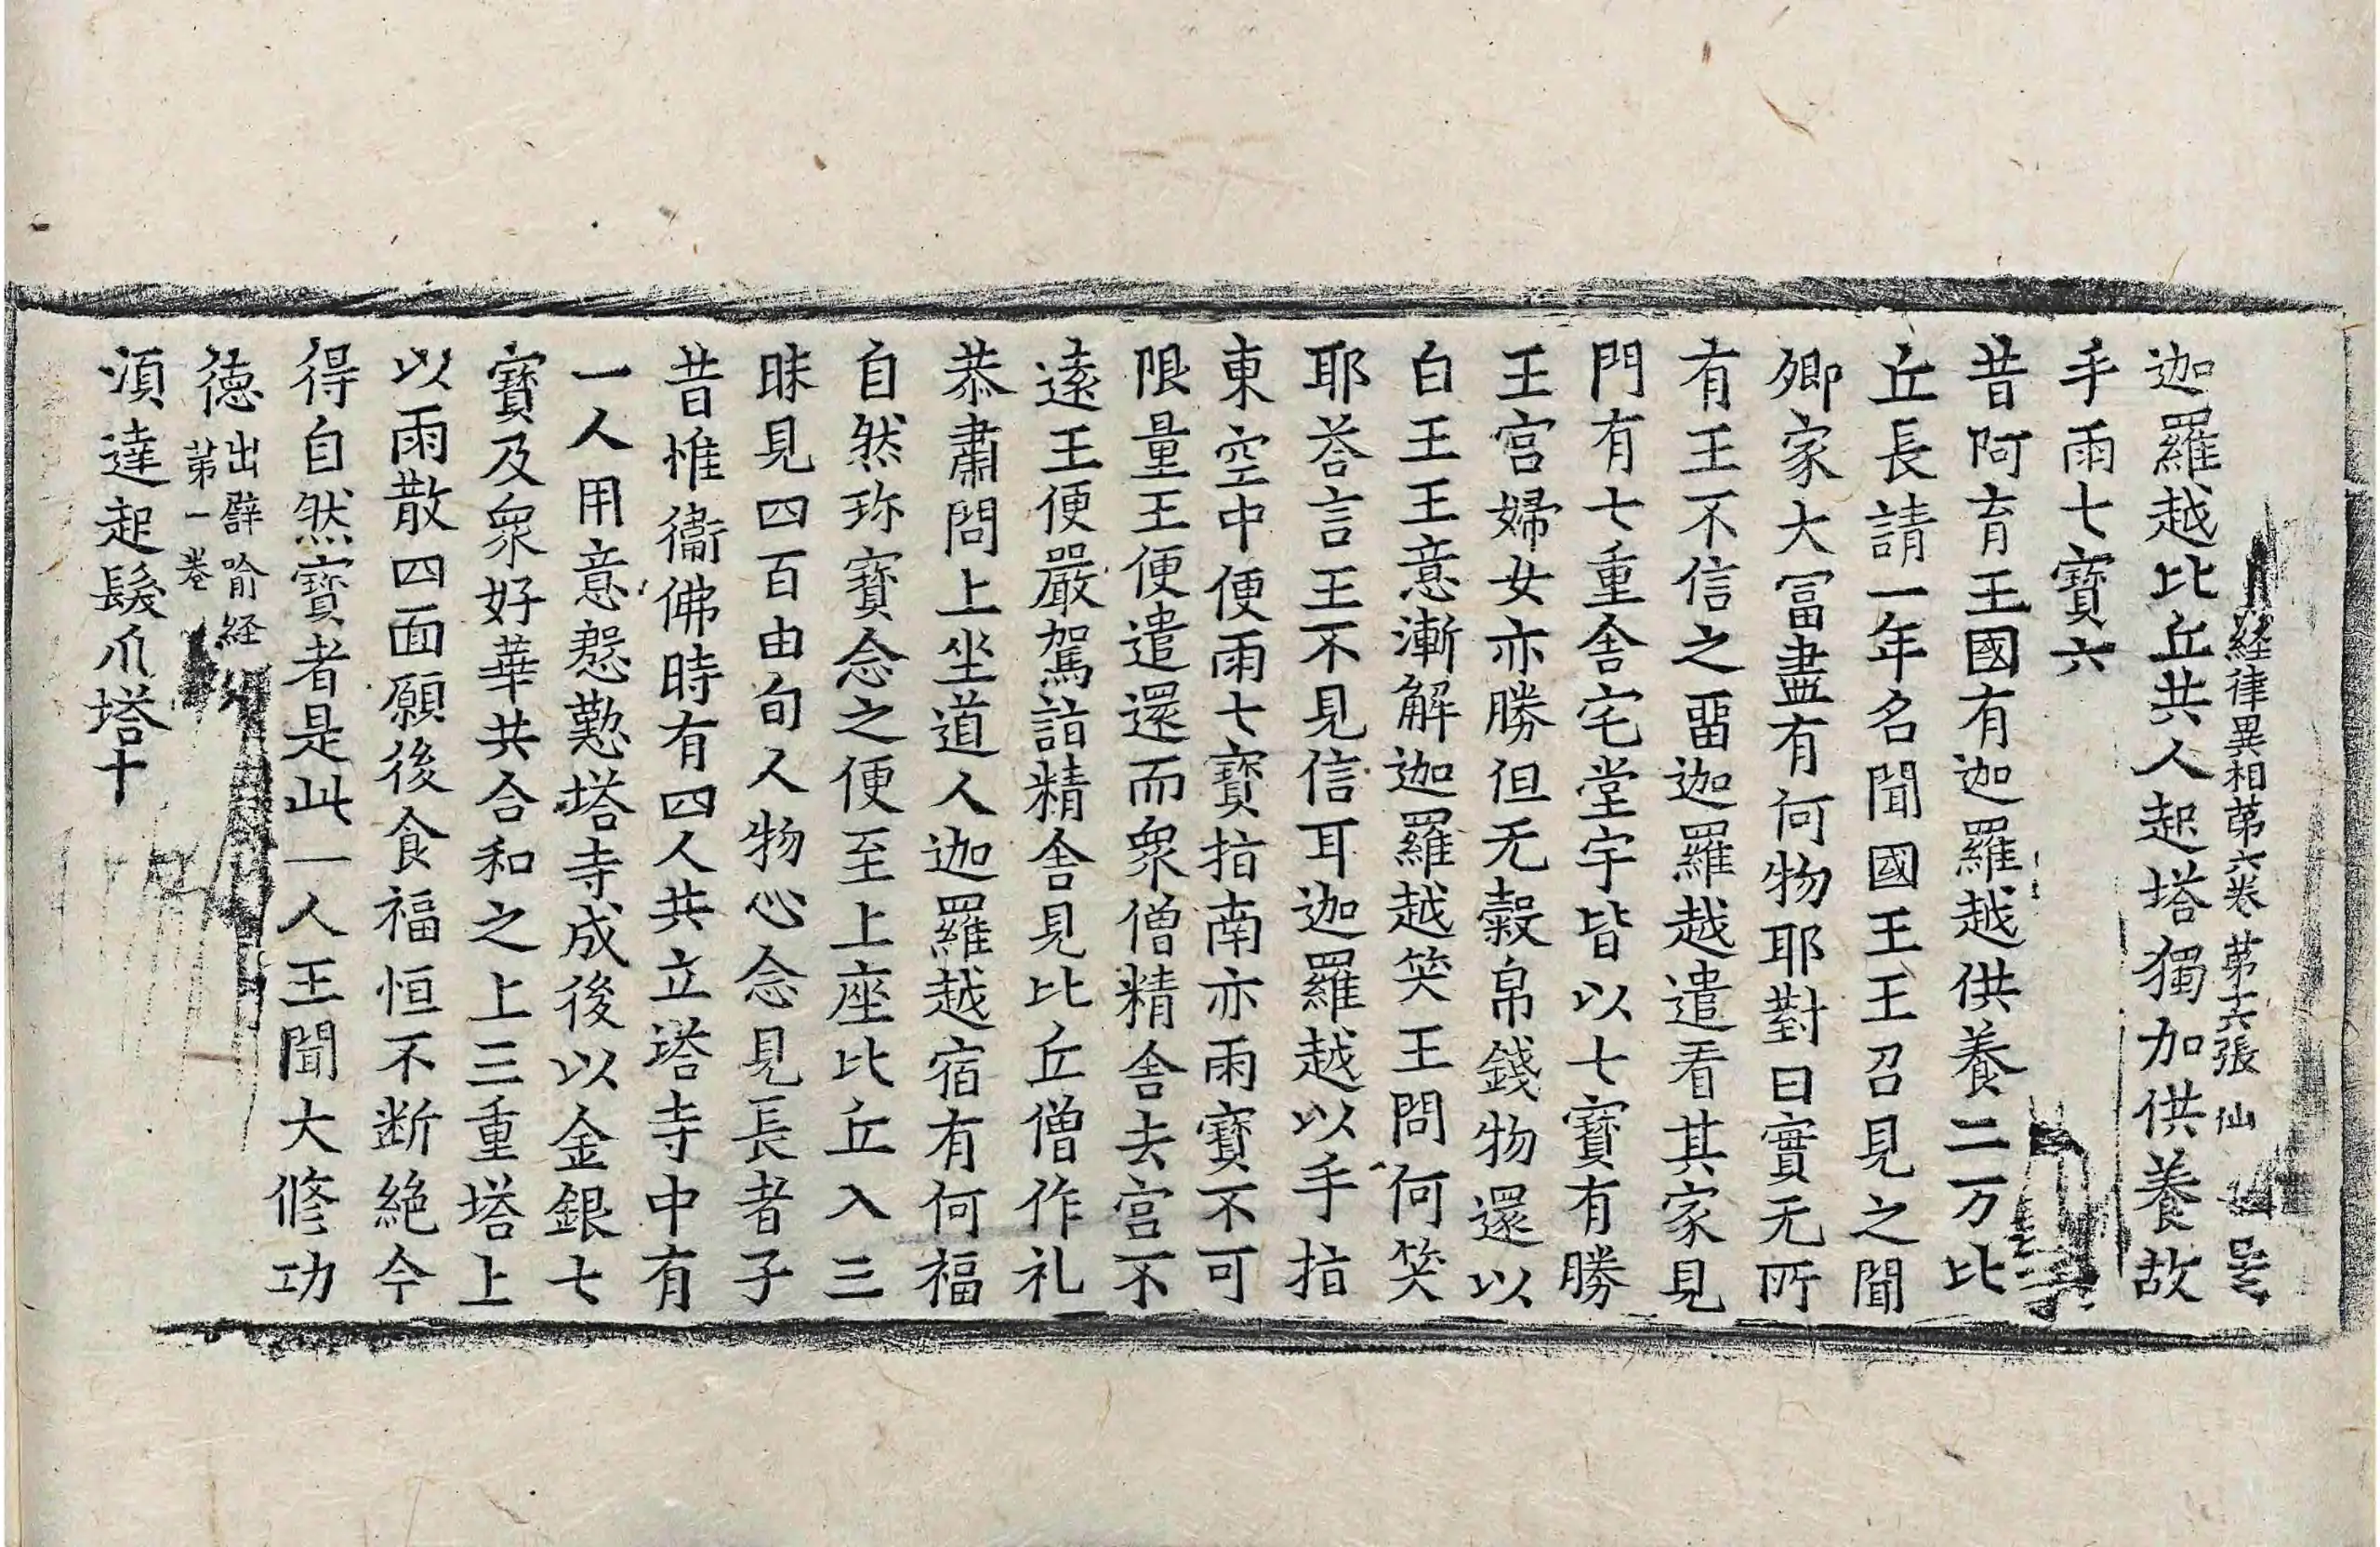 経律異相苐六卷 苐六張 仙
迦羅越比丘共人起塔獨加供養故
手雨七寶六
昔阿育王國有迦羅越供養二万比
丘長請一年名聞國王王召見之聞
卿家大冨盡有何物耶對曰實无所
有王不信之畱迦羅越遣看其家見
門有七重舍宅堂宇皆以七寶有勝
王宮婦女亦勝但无穀帛錢物還以
白王王意漸解迦羅越笑王問何笑
耶荅言王不見信耳迦羅越以手指
東空中便雨七寶指南亦雨寶不可
限量王便遣還而衆僧精舍去宮不
遠王便嚴駕詣精舍見比丘僧作礼
恭肅問上坐道人迦羅越宿有何福
自然珎寶念之便至上座比丘入三
昧見四百由旬人物心念見長者子
昔惟衛佛時有四人共立塔寺中有
一人用意慇懃塔寺成後以金銀七
寶及衆好華共合和之上三重塔上
以雨散四面願後食福恒不断絕今
得自然寶者是此一人王聞大修功
德出譬喻経
苐一卷
湏達起髮爪塔十